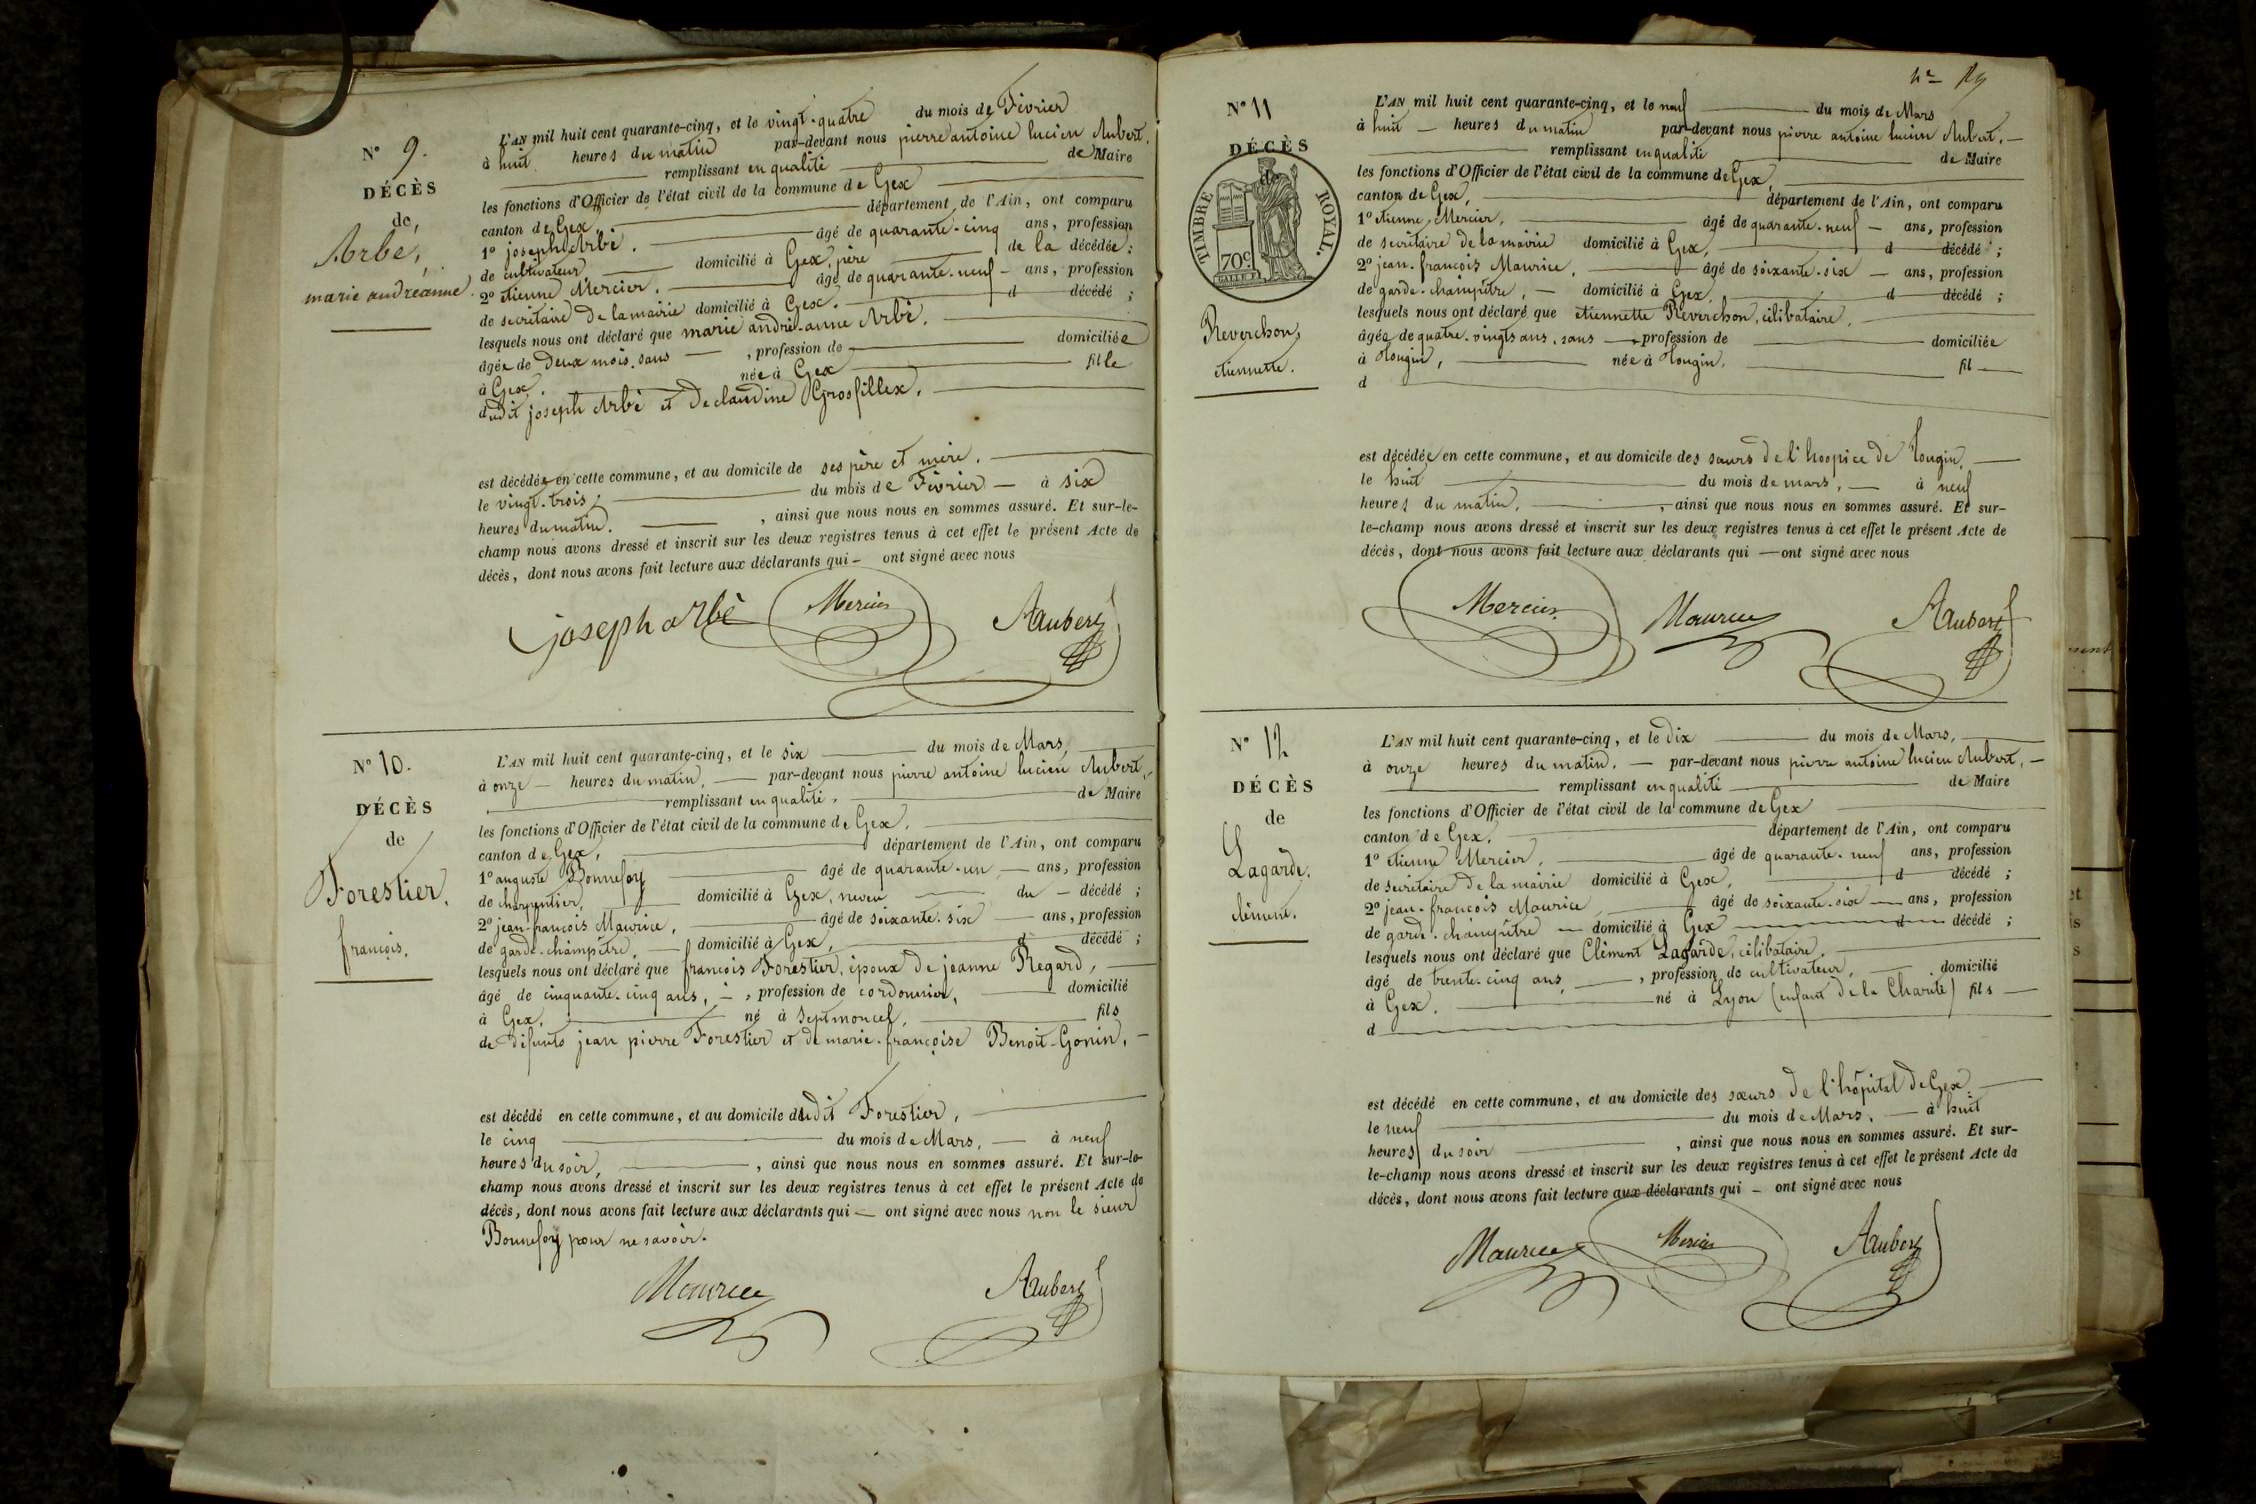 N° 9.
DÉCÈS
de
Arbé,
marie andréanne.
L'AN mil huit cent quarante-cinq, et le vingt-quatre du mois de Février
à huit heures du matin par-devant nous pierre antoine lucien Aubert,
remplissant en qualité de Maire
les fonctions d'Officier de l'état civil de la commune de Gex
canton de Gex, département de l'Ain, ont comparu
1° joseph Arbé. âgé de quarante-cinq ans, profession
de cultivateur domicilié à Gex, père de la décédée;
2° etienne Mercier. âgé de quarante-neuf ans, profession
de secrétaire de la mairie domicilié à Gex. d décédé ;
lesquels nous ont déclaré que marie andré-anne Arbé.
âgée de deux mois. sans , profession de domiciliée
à Gex. née à Gex fille
dudit joseph Arbé et de claudine Grosfillex.
est décédée en cette commune, et au domicile de ses père et mère.
le vingt-trois, du mois de Février à six
heures du matin. , ainsi que nous nous en sommes assuré. Et sur-le-
champ nous avons dressé et inscrit sur les deux registres tenus à cet effet le présent Acte de
décès, dont nous avons fait lecture aux déclarants qui ont signé avec nous
joseph arbé Mercier Aubert
N° 10.
DÉCÈS
de
Forestier.
françois.
L'AN mil huit cent quarante-cinq, et le six du mois de Mars,
à onze heures du matin, par-devant nous pierre antoine lucien Aubert,
remplissant en qualité. de Maire
les fonctions d'Officier de l'état civil de la commune de Gex.
canton de Gex, département de l'Ain, ont comparu
1° auguste Bonnefoy âgé de quarante-un ans, profession
de charpentier, domicilié à Gex, neveu du décédé ;
2° jean-françois Maurice, âgé de soixante-six ans, profession
de garde-champêtre, domicilié à Gex, d décédé ;
lesquels nous ont déclaré que françois Forestier, époux de jeanne Regard,
âgé de cinquante-cinq ans, , profession de cordonnier, domicilié
à Gex, né à Septmoncel, fils
de défunts jean pierre Forestier et de marie-françoise Benoit-Gonin.
est décédé en cette commune, et au domicile dudit Forestier,
le cinq du mois de Mars, à neuf
heures du soir, , ainsi que nous nous en sommes assuré. Et sur-le-
champ nous avons dressé et inscrit sur les deux registres tenus à cet effet le présent Acte de
décès, dont nous avons fait lecture aux déclarants qui ont signé avec nous non le sieur
Bonnefoy pour ne savoir.
Maurice Aubert
N° 11
DÉCÈS
TIMBRE ROYAL.
70c.
Reverchon,
etiennette.
L'AN mil huit cent quarante-cinq, et le neuf du mois de Mars
à huit heures du matin par-devant nous pierre antoine lucien Aubert.
remplissant en qualité de Maire
les fonctions d'Officier de l'état civil de la commune de Gex,
canton de Gex, département de l'Ain, ont comparu
1° etienne Mercier, âgé de quarante-neuf ans, profession
de secrétaire de la mairie domicilié à Gex, d décédé ;
2° jean-françois Maurice, âgé de soixante-six ans, profession
de garde-champêtre, domicilié à Gex, d décédé ;
lesquels nous ont déclaré que etiennette Reverchon, célibataire,
âgée de quatre-vingts ans, sans profession de domiciliée
à Tougin, née à Tougin, fil
d
est décédée en cette commune, et au domicile des sœurs de l'hospice de Tougin,
le huit du mois de mars, à neuf
heures du matin, , ainsi que nous nous en sommes assuré. Et sur-
le-champ nous avons dressé et inscrit sur les deux registres tenus à cet effet le présent Acte de
décès, dont nous avons fait lecture aux déclarants qui ont signé avec nous
Mercier Maurice Aubert
N° 12
DÉCÈS
de
Lagarde.
clément.
L'AN mil huit cent quarante-cinq, et le dix du mois de Mars,
à onze heures du matin. par-devant nous pierre antoine lucien Aubert,
remplissant en qualité de Maire
les fonctions d'Officier de l'état civil de la commune de Gex
canton de Gex, département de l'Ain, ont comparu
1° etienne Mercier, âgé de quarante-neuf ans, profession
de secrétaire de la mairie domicilié à Gex, d décédé ;
2° jean-françois Maurice âgé de soixante-six ans, profession
de garde-champêtre domicilié à Gex d décédé ;
lesquels nous ont déclaré que Clément Lagarde, célibataire,
âgé de trente-cinq ans, , profession de cultivateur, domicilié
à Gex. né à Lyon (enfant de la Charité) fils
d
est décédé en cette commune, et au domicile des sœurs de l'hôpital de Gex
le neuf du mois de Mars, à huit
heures du soir , ainsi que nous nous en sommes assuré. Et sur-
le-champ nous avons dressé et inscrit sur les deux registres tenus à cet effet le présent Acte de
décès, dont nous avons fait lecture aux déclarants qui ont signé avec nous
Maurice Mercier Aubert